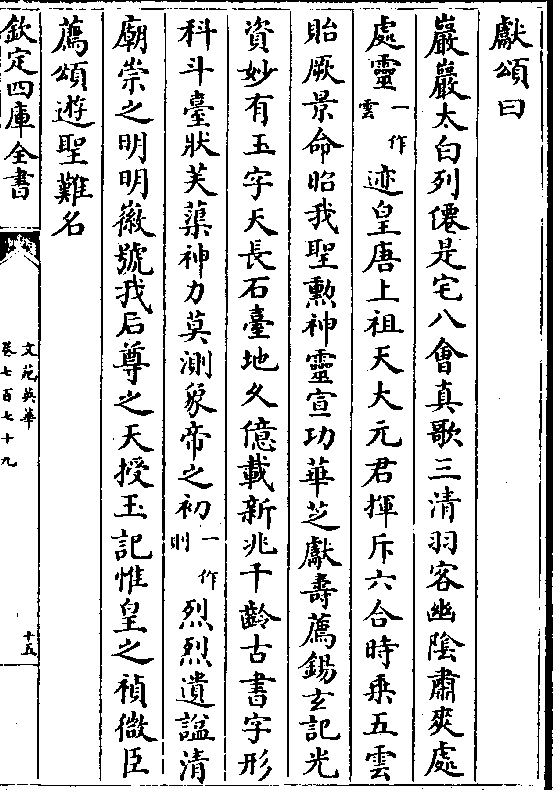 獻頌曰
巖巖太白列僊是宅八會真歌三清羽客幽陰肅爽處
處靈一作雲迹皇唐上祖天大元君揮斥六合時乗五雲
貽厥景命昭我聖勲神靈宣功華芝獻壽薦錫玄記光
資妙有玉字天長石臺地久億載新兆千齡古書字形
科斗臺狀芙蕖神力莫測象帝之初一作則烈烈遺諡清
廟崇之明明徽號我后尊之天授玉記惟皇之禎微臣
薦頌遊聖難名
欽定四庫全書
文苑英華
卷七百七十九
十五